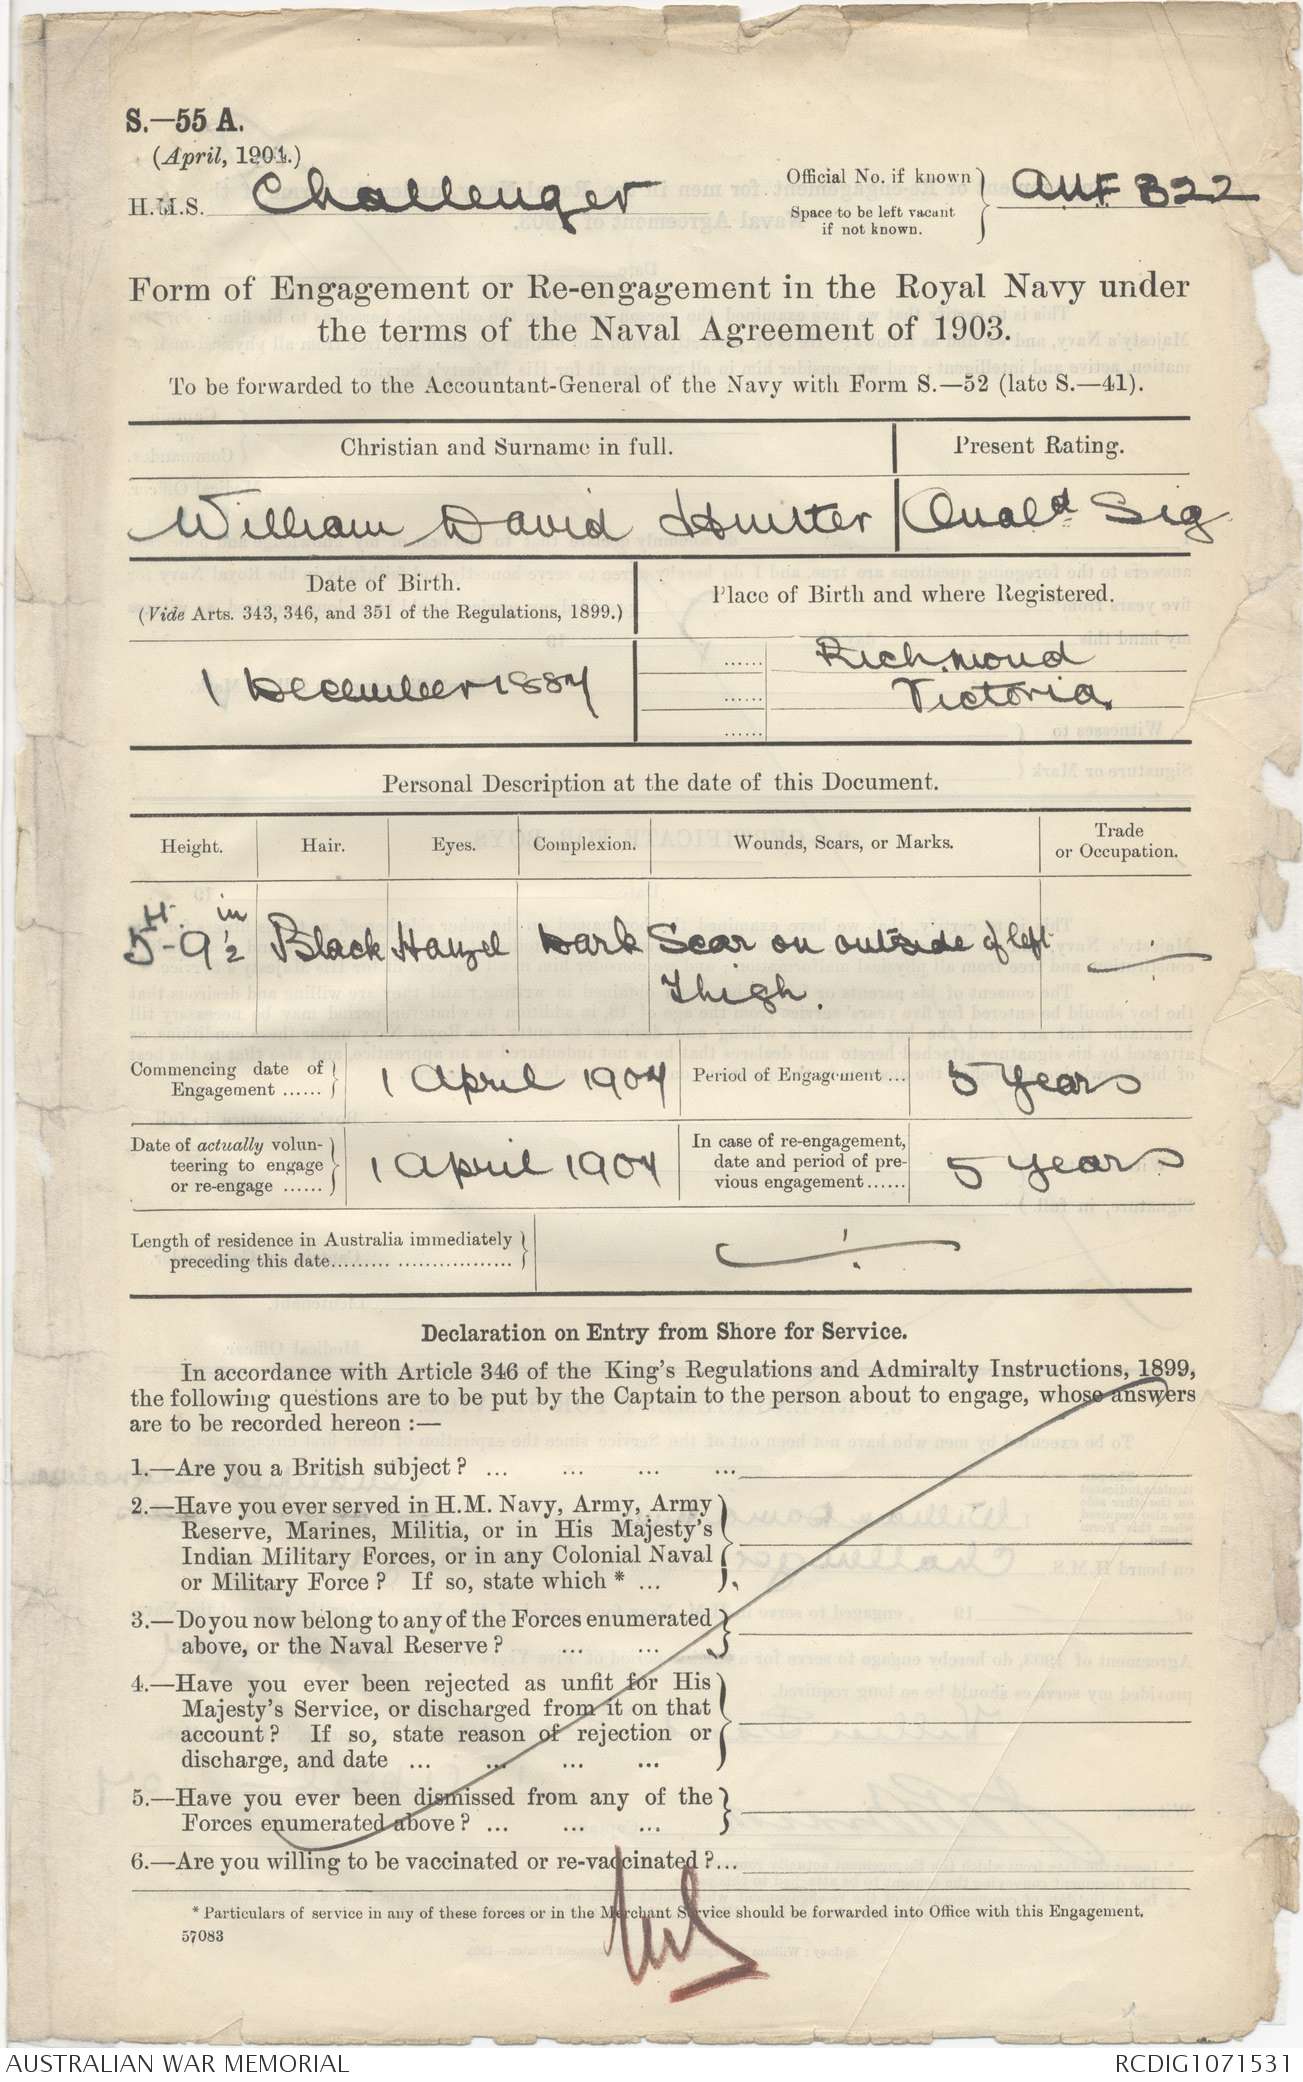 S.—55 A.
(April, 1904.)
H.M.S. Challenger
Official No. if known
Space to be left vacant
if not known.
AUF 322
Form of Engagement or Re-engagement in the Royal Navy under
the terms of the Naval Agreement of 1903.
To be forwarded to the Accountant-General of the Navy with Form S.—52 (late S.—41).
Christian and Surname in full. Present Rating.
William David Hunter Quald Sig
Date of Birth.
(Vide Arts. 343, 346, and 351 of the Regulations, 1899.)
Place of Birth and where Registered.
1 December 1887
Richmond
Victoria.
Personal Description at the date of this Document.
Height. Hair. Eyes. Complexion. Wounds, Scars, or Marks. Trade
or Occupation.
5ft- 9½ in Black Hazel Dark Scar on outside of left
Thigh.
Commencing date of
Engagement ...... 1 April 1907 Period of Engagement ... 5 Years
Date of actually volun-
teering to engage
or re-engage ...... 1 April 1907
In case of re-engagement,
date and period of pre-
vious engagement...... 5 Years
Length of residence in Australia immediately
preceding this date......... ..................
Declaration on Entry from Shore for Service.
In accordance with Article 346 of the King's Regulations and Admiralty Instructions, 1899,
the following questions are to be put by the Captain to the person about to engage, whose answers
are to be recorded hereon :—
1.—Are you a British subject ? ... ... ... ...
2.—Have you ever served in H.M. Navy, Army, Army
Reserve, Marines, Militia, or in His Majesty's
Indian Military Forces, or in any Colonial Naval
or Military Force ? If so, state which * ...
3.—Do you now belong to any of the Forces enumerated
above, or the Naval Reserve ? ... ...
4.—Have you ever been rejected as unfit for His
Majesty's Service, or discharged from it on that
account ? If so, state reason of rejection or
discharge, and date ... ... ... ...
5.—Have you ever been dismissed from any of the
Forces enumerated above ? ... ... ...
6.—Are you willing to be vaccinated or re-vaccinated ?...
* Particulars of service in any of these forces or in the Merchant Service should be forwarded into Office with this Engagement.
57083
AUSTRALIAN WAR MEMORIAL
RCDIG1071531